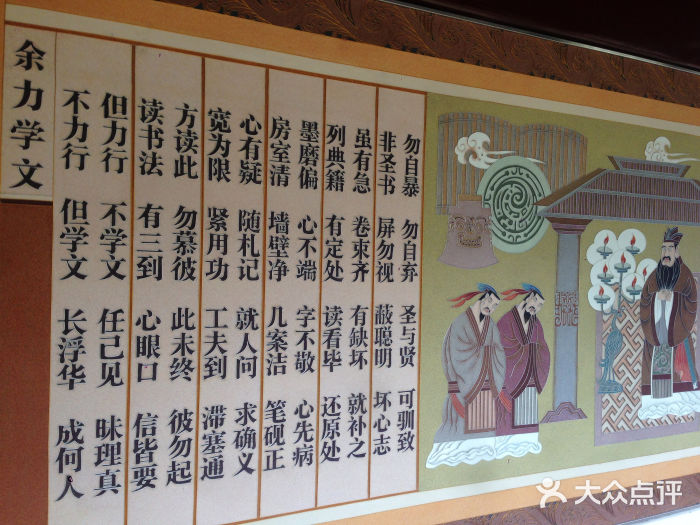 余力学文
不力行 但学文 长浮华 成何人
但力行 不学文 任己见 昧理真
读书法 有三到 心眼口 信皆要
方读此 勿慕彼 此未终 彼勿起
宽为限 紧用功 工夫到 滞塞通
心有疑 随札记 就人问 求确义
房室清 墙壁净 几案洁 笔砚正
墨磨偏 心不端 字不敬 心先病
列典籍 有定处 读看毕 还原处
虽有急 卷束齐 有缺坏 就补之
非圣书 屏勿视 蔽聪明 坏心志
勿自暴 勿自弃 圣与贤 可驯致
大众点评